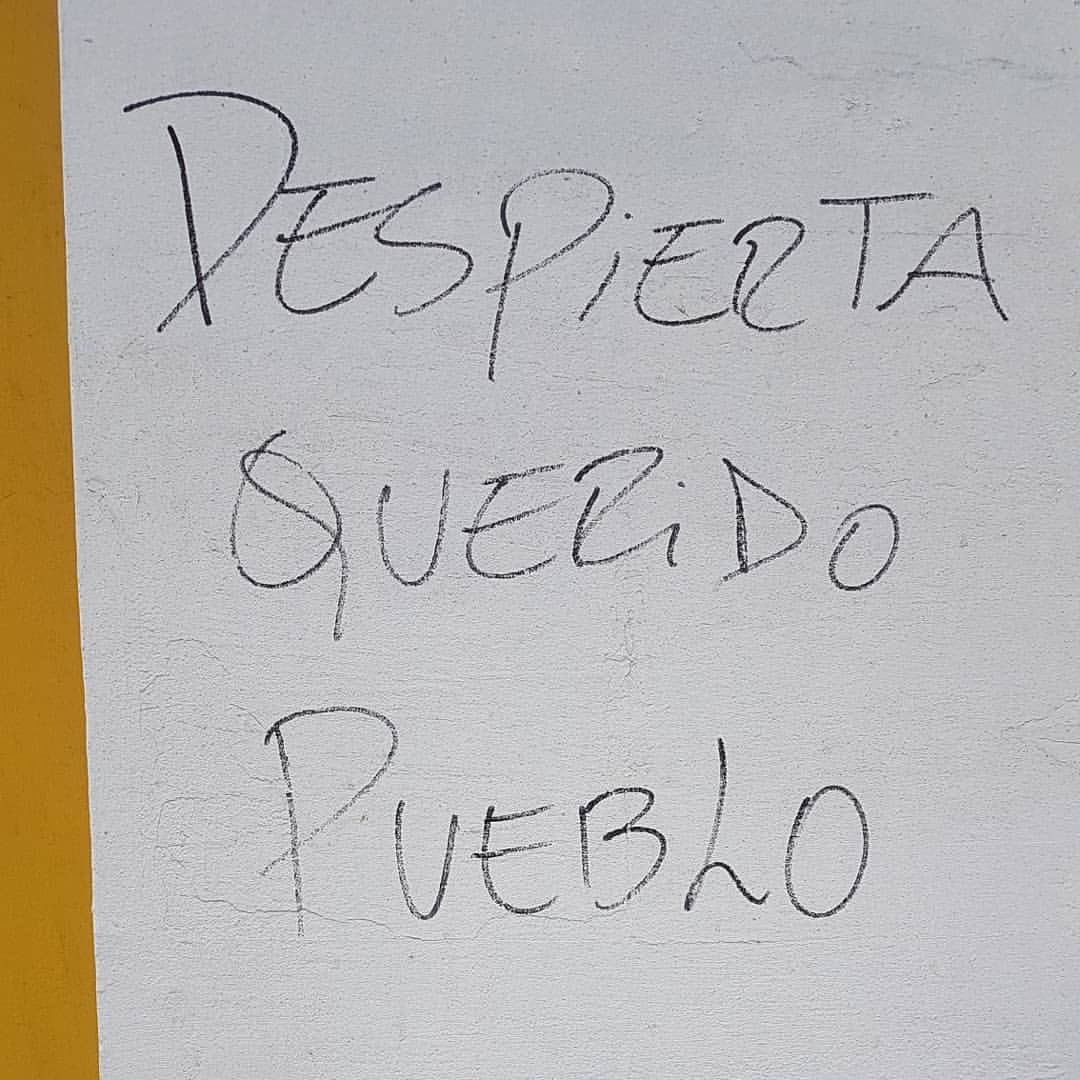 DESPiERTA
QUERiDO
PUEBLO